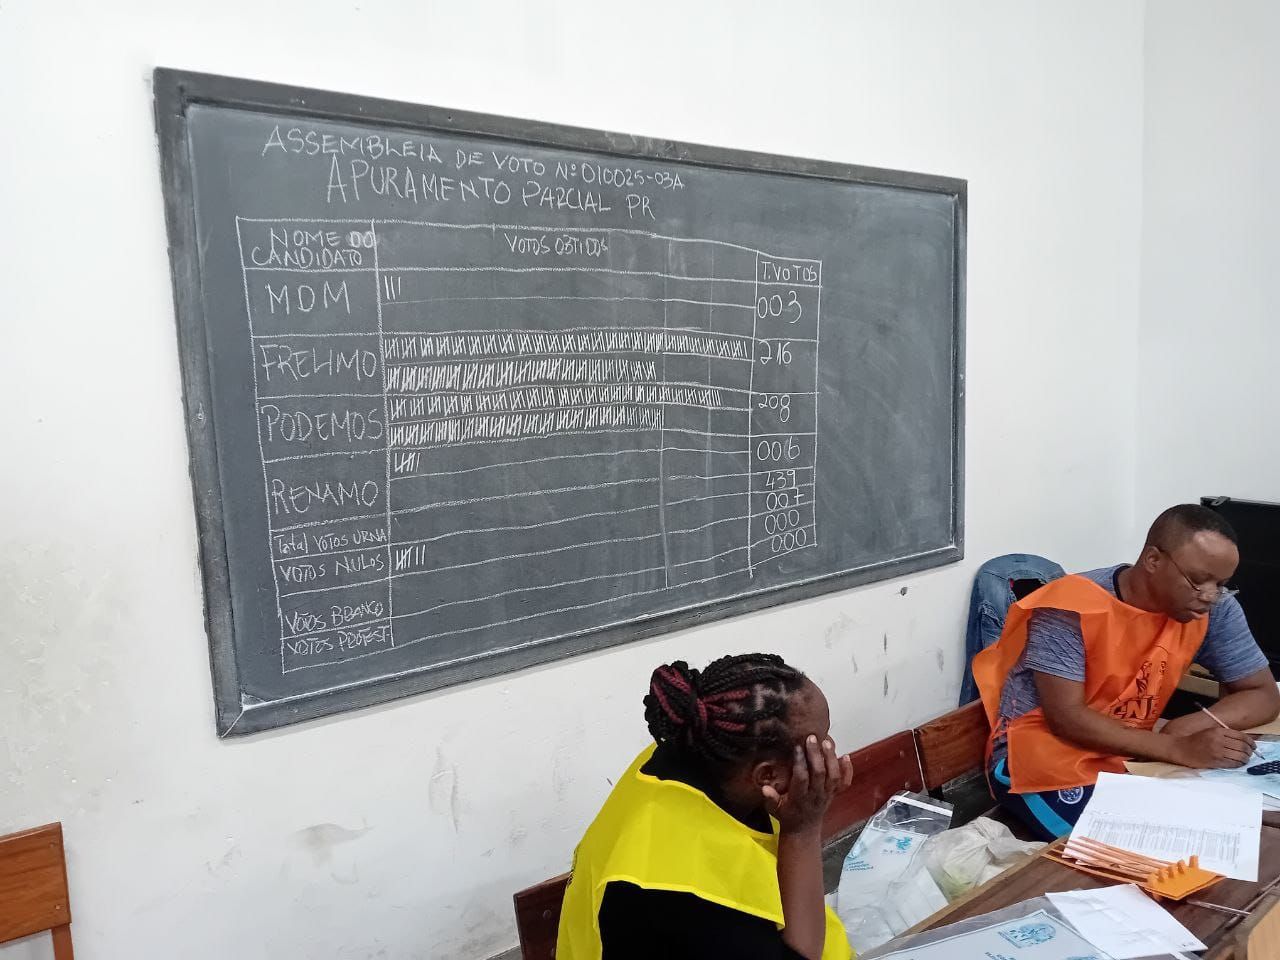 ASSEMBLEIA DE VOTO Nº 010025-03A
APURAMENTO PARCIAL PR
NOME DO CANDIDATO
VOTOS OBTIDOS
T.VOTOS
MDM
003
FRELIMO
216
PODEMOS
208
RENAMO
006
Total VOTOS URNA
439
VOTOS NULOS
007
VOTOS BRANCO
000
VOTOS PROTEST
000
CNE